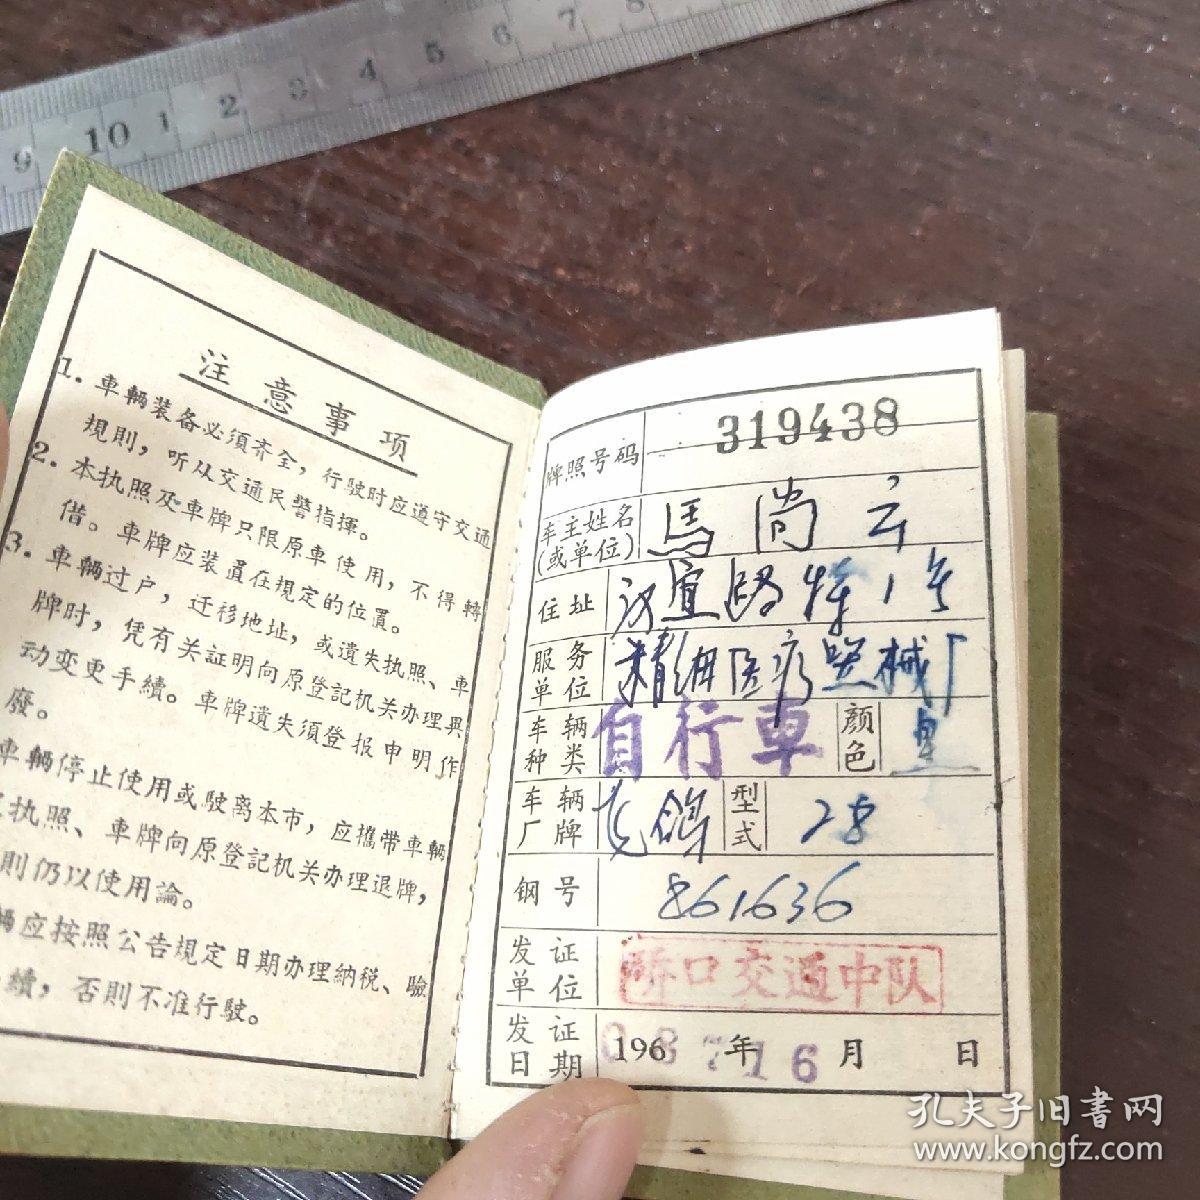 9 10 1 2 3 4 5 6 7 8
注意事项
1. 車輛装备必須齐全，行駛时应遵守交通
規則，听从交通民警指揮。
2. 本执照及車牌只限原車使用，不得轉
借。車牌应装置在規定的位置。
3. 車輛过户，迁移地址，或遺失执照、車
牌时，凭有关証明向原登記机关办理異
动变更手續。車牌遺失須登报申明作
廢。
車輛停止使用或駛离本市，应攜带車輛
执照、車牌向原登記机关办理退牌，
則仍以使用論。
輛应按照公告規定日期办理納税、驗
續，否則不准行駛。
牌照号码 319438
车主姓名(或单位) 馬尚云
住址 汉宜路特1号
服务单位 精细医疗器械厂
车辆种类 自行車 颜色 黑
车辆厂牌 飞鸽 型式 28
钢号 861636
发证单位 硚口交通中队
发证日期 196 年 月 日
孔夫子旧書网
www.kongfz.com